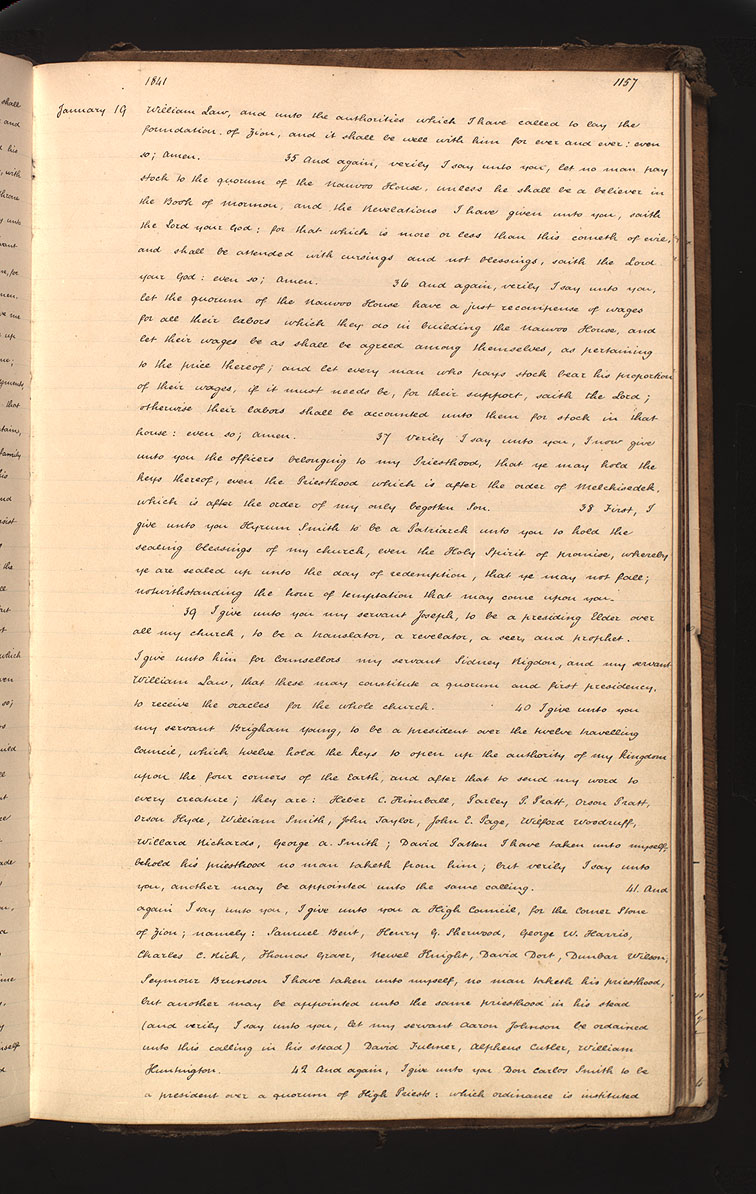 1841 1157
January 19 William Law, and unto the authorities which I have called to lay the
foundation of Zion, and it shall be well with him for ever and ever: even
so; Amen. 35 And again, verily I say unto you, let no man pay
stock to the quorum of the Nauvoo House, unless he shall be a believer in
the Book of Mormon, and the Revelations I have given unto you, saith
the Lord your God: for that which is more or less than this cometh of evil,
and shall be attended with cursings and not blessings, saith the Lord
your God: even so; Amen. 36 And again, verily I say unto you,
let the quorum of the Nauvoo House have a just recompense of wages
for all their labors which they do in building the Nauvoo House, and
let their wages be as shall be agreed among themselves, as pertaining
to the price thereof; and let every man who pays stock bear his proportion
of their wages, if it must needs be, for their support, saith the Lord;
otherwise their labors shall be accounted unto them for stock in that
house: even so; Amen. 37 Verily I say unto you, I now give
unto you the officers belonging to my Priesthood, that ye may hold the
keys thereof, even the Priesthood which is after the order of Melchisedek,
which is after the order of my only begotten Son. 38 First, I
give unto you Hyrum Smith to be a Patriarch unto you to hold the
sealing blessings of my church, even the Holy Spirit of promise, whereby
ye are sealed up unto the day of redemption, that ye may not fall;
notwithstanding the hour of temptation that may come upon you.
39 I give unto you my servant Joseph, to be a presiding Elder over
all my church, to be a translator, a revelator, a seer, and prophet.
I give unto him for Counsellors my servant Sidney Rigdon, and my servant
William Law, that these may constitute a quorum and first presidency,
to receive the oracles for the whole church. 40 I give unto you
my servant Brigham Young, to be a president over the twelve travelling
Council, which twelve hold the keys to open up the authority of my kingdom
upon the four corners of the Earth, and after that to send my word to
every creature; they are: Heber C. Kimball, Parley P. Pratt, Orson Pratt,
Orson Hyde, William Smith, John Taylor, John E. Page, Wilford Woodruff,
Willard Richards, George A. Smith; David Patten I have taken unto myself,
behold his priesthood no man taketh from him; but verily I say unto
you, another may be appointed unto the same calling. 41. And
again I say unto you, I give unto you a High Council, for the Corner Stone
of Zion; namely: Samuel Bent, Henry G. Sherwood, George W. Harris,
Charles C. Rich, Thomas Grover, Newel Knight, David Dort, Dunbar Wilson,
Seymour Brunson I have taken unto myself, no man taketh his priesthood,
but another may be appointed unto the same priesthood in his stead
(and verily I say unto you, let my servant Aaron Johnson be ordained
unto this calling in his stead) David Fulmer, Alpheus Cutler, William
Huntington. 42 And again, I give unto you Don Carlos Smith to be
a president over a quorum of High Priests: which ordinance is instituted